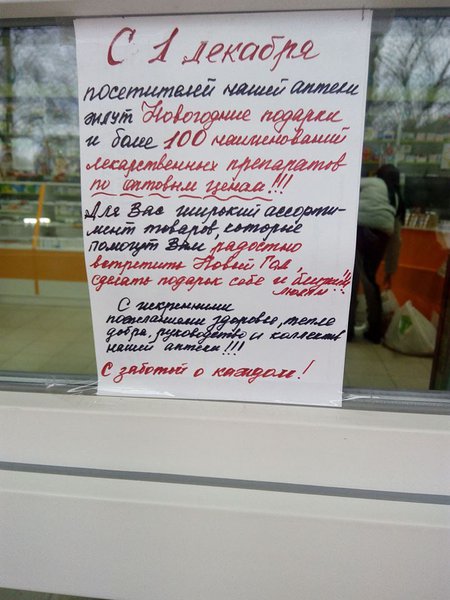 С 1 декабря
посетителей нашей аптеки
ждут Новогодние подарки
и более 100 наименований
лекарственных препаратов
по оптовым ценам!!!
Для Вас широкий ассорти-
мент товаров, которые
помогут Вам радостно
встретить Новый Год,
сделать подарок себе и близким
людям!!!
С искренними
пожеланиями здоровья, тепла
добра, руководство и коллектив
нашей аптеки!!!
С заботой о каждом!